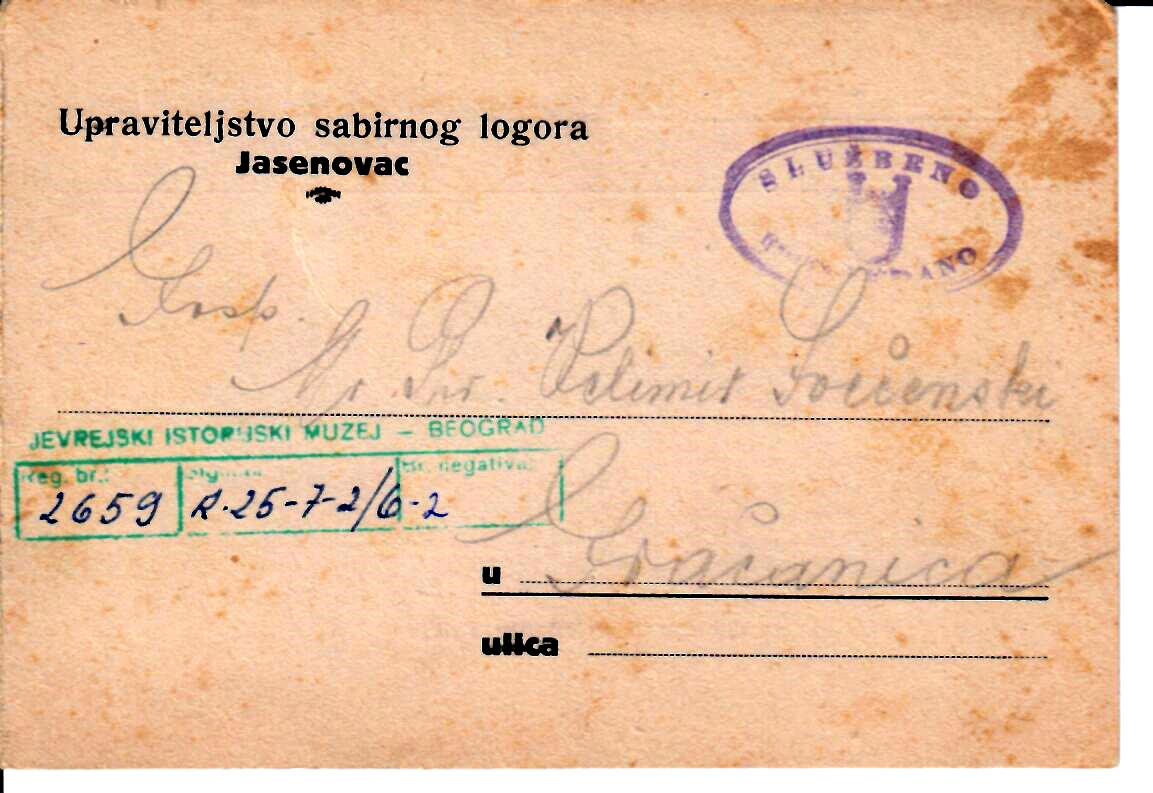 Upraviteljstvo sabirnog logora
Jasenovac
SLUŽBENO
Gosp.
Mr. Dr. Velimir
JEVREJSKI ISTORIJSKI MUZEJ – BEOGRAD
Reg. br.: Br. negativa:
2659 R.25-7-2/6-2
u Gračanica
ulica